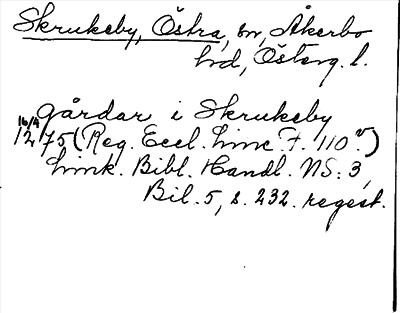 Skrukeby, Östra, sn, Åkerbo
hrd, Österg. l.
gårdar i Skrukeby
16/4 1275 (Reg. Eccl. Linc. f. 110 v.)
Link. Bibl. Handl. NS: 3,
Bil. 5, s. 232. regest.